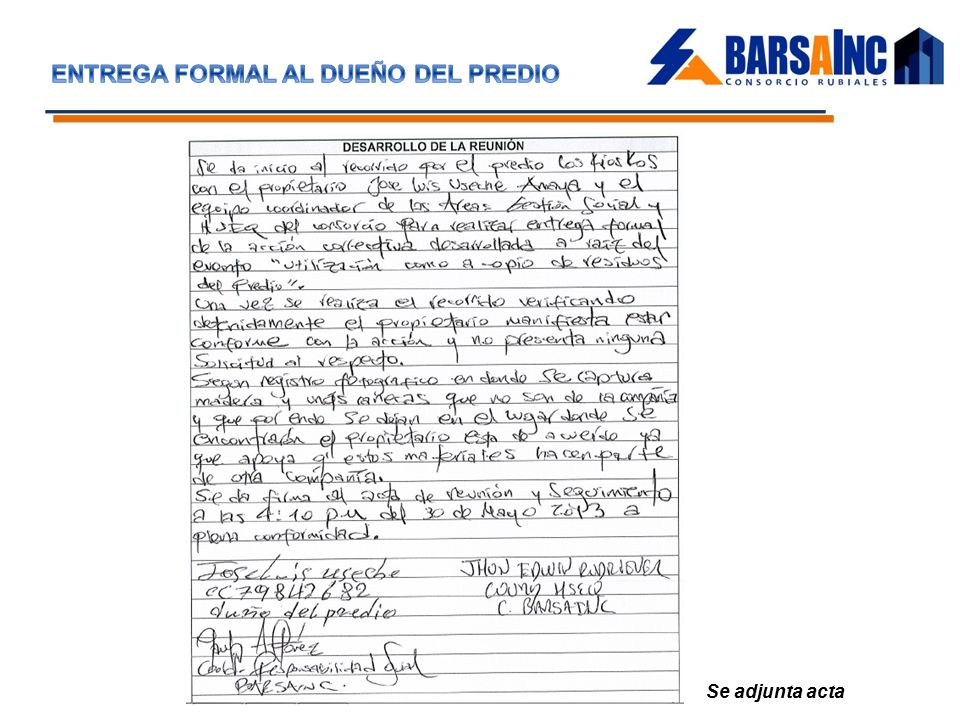 ENTREGA FORMAL AL DUEÑO DEL PREDIO
BARSAINC
CONSORCIO RUBIALES
DESARROLLO DE LA REUNIÓN
Se da inicio al recorrido por el predio los kioskos
con el propietario Jose Luis Useche Anaya y el
equipo coordinador de las Areas Gestión Social y
HSEQ del consorcio para realizar entrega formal
de la acción correctiva desarrollada a raiz del
evento "utilización como acopio de residuos
del Predio".
Una vez se realiza el recorrido verificando
detenidamente el propietario manifiesta estar
conforme con la acción y no presenta ninguna
Solicitud al respecto.
Segun registro fotografico en donde se captura
madera y unas canecas que no son de la compañia
y que por ende se dejan en el lugar donde se
encontrarón el propietario esta de acuerdo ya
que apoya q' estos materiales hacen parte
de otra compañia.
Se da firma al acta de reunión y seguimiento
a las 4:10 p.m del 30 de Mayo 2013 a
plena conformidad.
Jose Luis Useche JHON EDWIN RODRIGUEZ
cc 79842682 COORD HSEQ
dueño del predio C. BARSAINC
Coord. Responsabilidad Social
BARSAINC.
Se adjunta acta